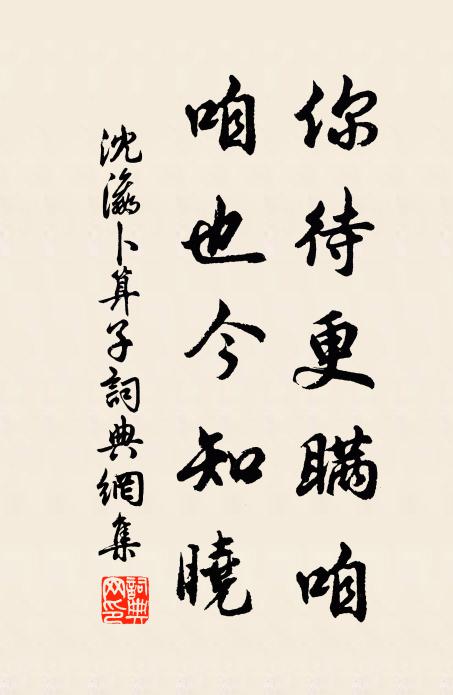 你待更瞞咱
咱也今知曉
沈瀛卜算子詞典網集
詞典网印